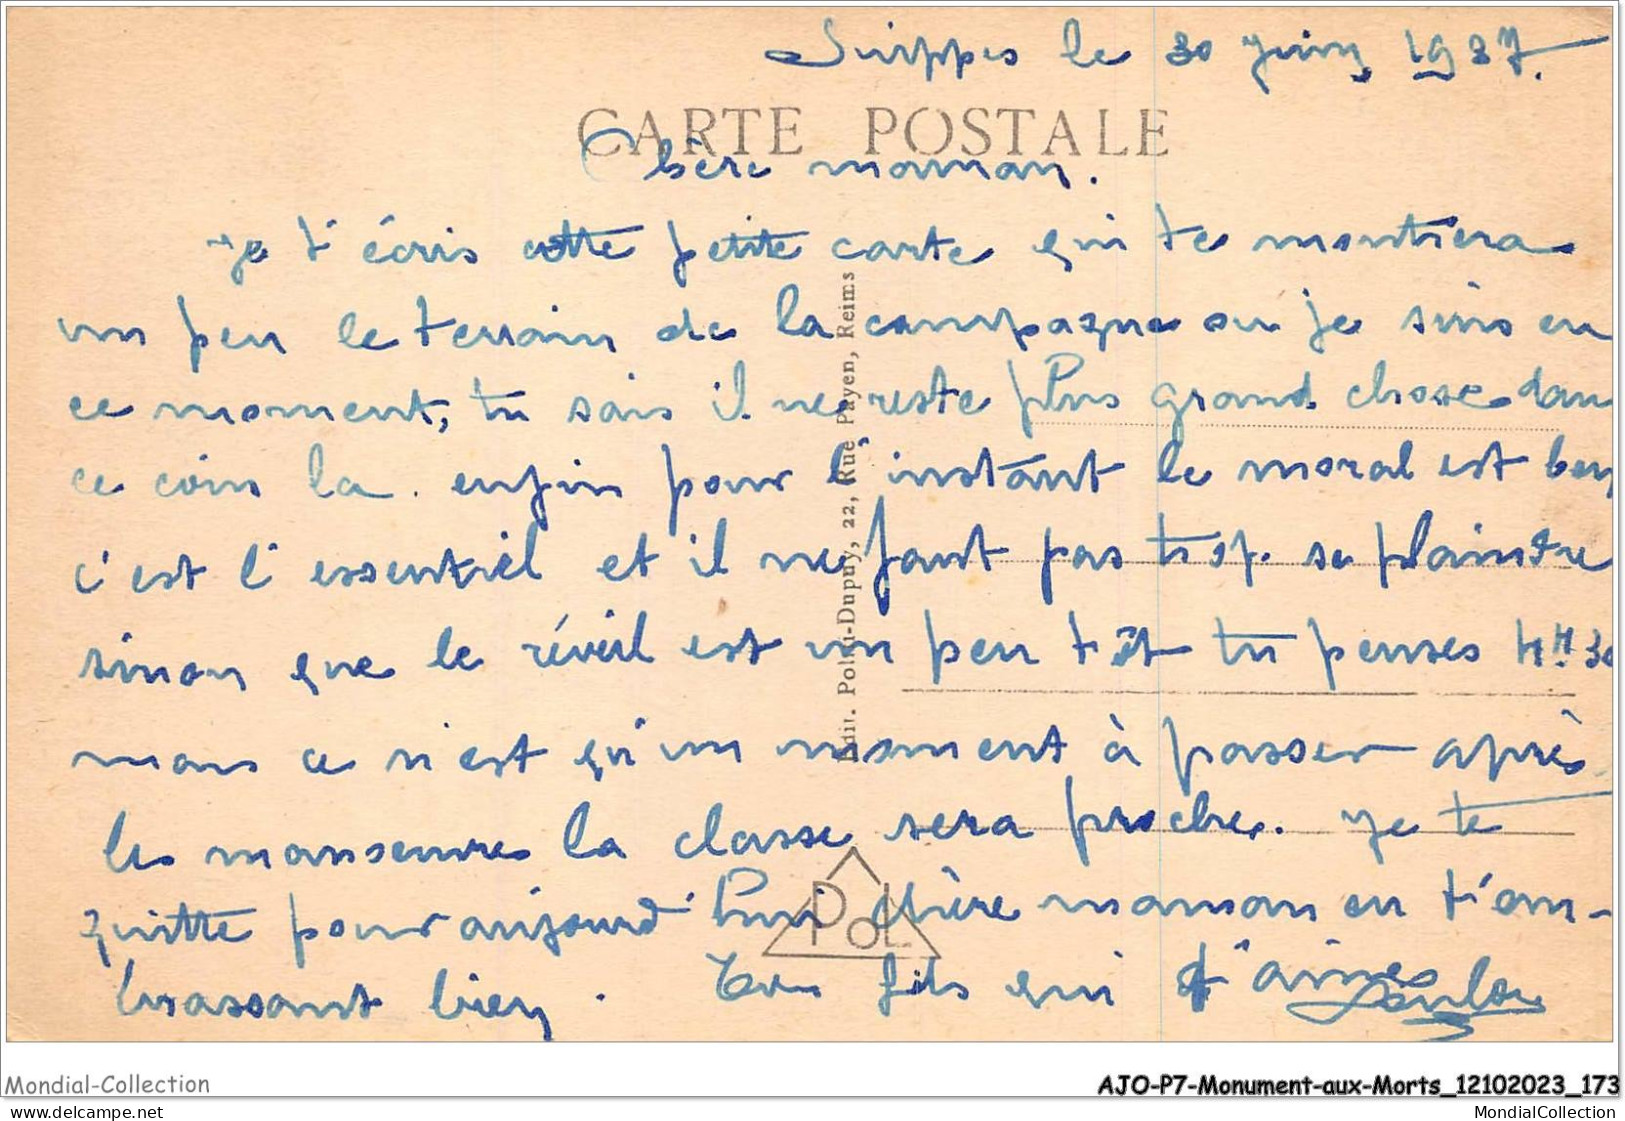 Suippes le 30 juin 1937.
CARTE POSTALE
Chère maman.
je t'écris cette petite carte qui te montrera
un peu le terrain de la campagne ou je suis en
ce moment, tu sais il ne reste plus grand chose dans
ce coin la. enfin pour l'instant le moral est bon
c'est l'essentiel et il ne faut pas trop se plaindre
sinon que le réveil est un peu tôt tu penses 4H.30
mais ce n'est qu'un moment à passer après
les manoeuvres la classe sera proche. je te
quitte pour aujourd'hui chère maman en t'em-
brassant bien. Ton fils qui t'aimes
Edit. Polni-Dupuy, 22, Rue Payen, Reims
PoL
Mondial-Collection
AJO-P7-Monument-aux-Morts_12102023_173
www.delcampe.net
MondialCollection